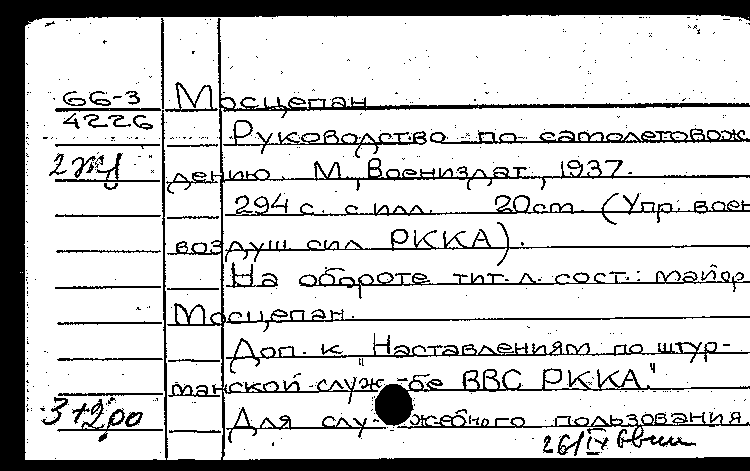 66-3 Мосцепан
4226
Руководство по самолетовож
дению. М., Воениздат, 1937.
294 с. с илл. 20см. (Упр. воен
воздуш сил РККА).
На обороте тит. л. сост.: майор
Мосцепан.
Доп. к "Наставлениям по штур-
манской служ-бе ВВС РККА."
Для слу-жебного пользования
26/IX